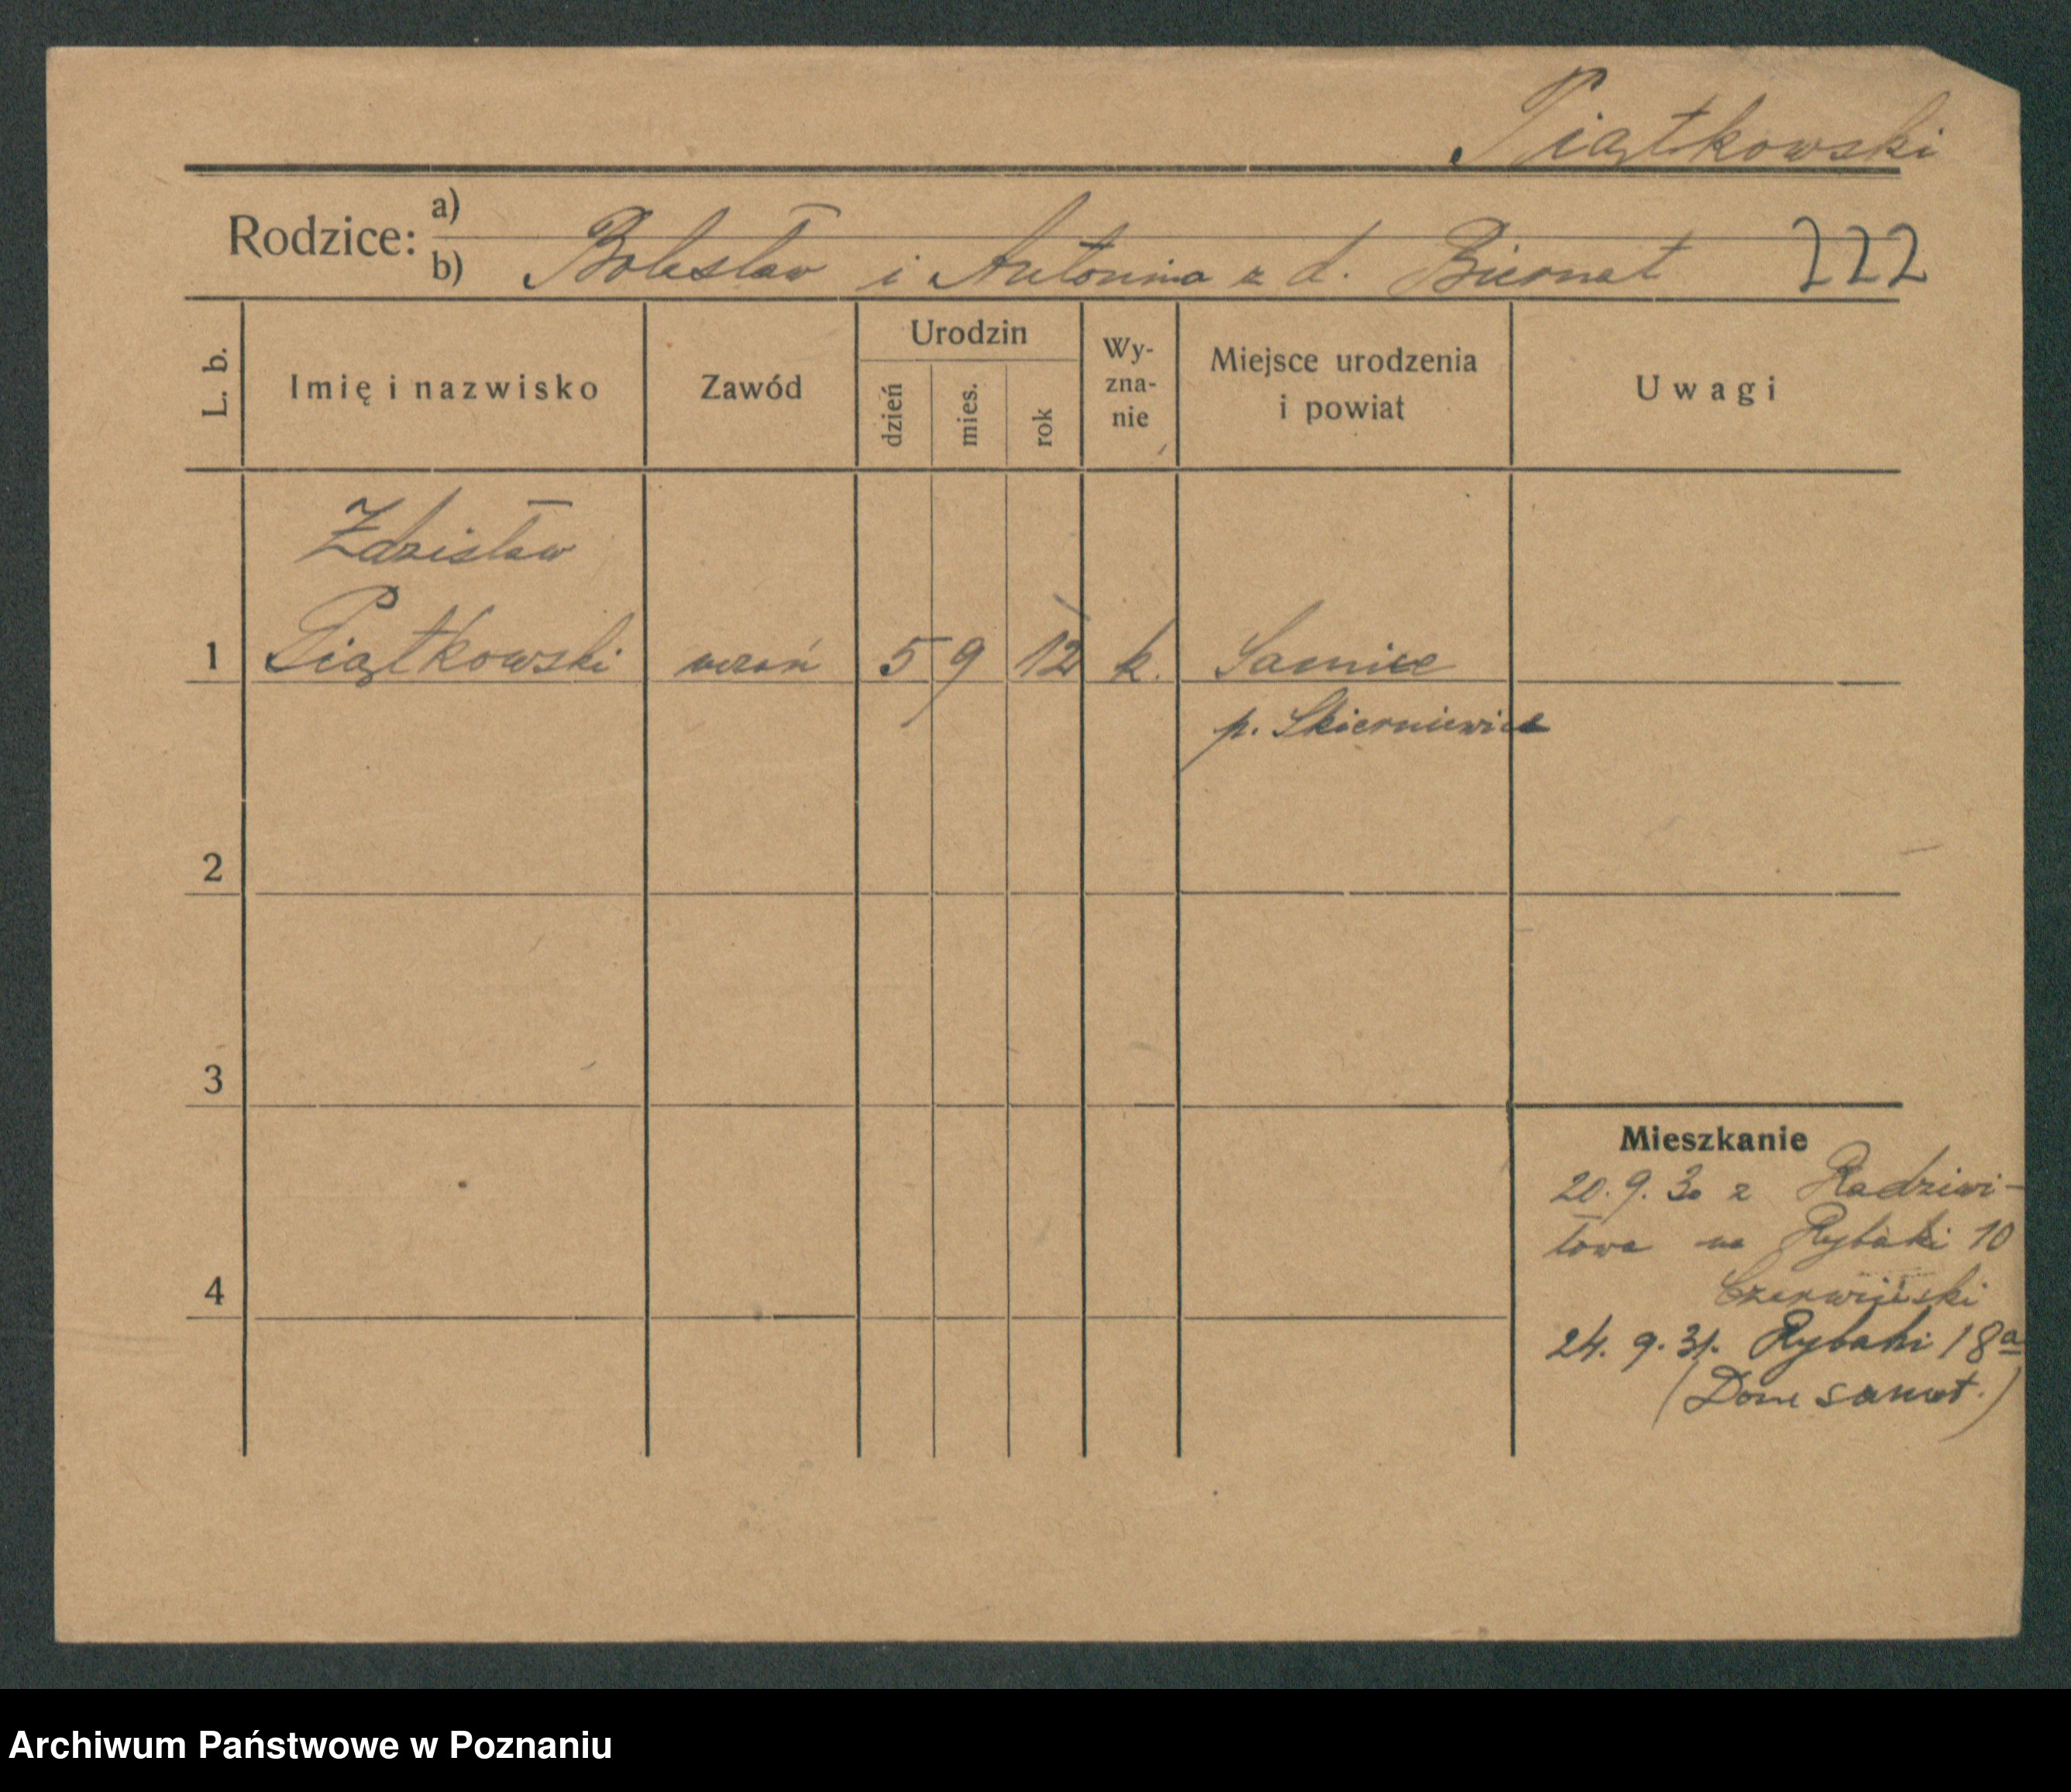 Piątkowski
Rodzice: a)
b) Bolesław i Antonina z d. Biernat 222
L. b. Imię i nazwisko Zawód Urodzin dzień mies. rok Wy-zna-nie Miejsce urodzenia i powiat Uwagi
Zdzisław
1 Piątkowski uczeń 5 9 12 k. Samice
p. Skierniewice
2
3
Mieszkanie
20. 9. 30 z Radziwi-
łowa na Rybaki 10
4 Czerwiński
24. 9. 31. Rybaki 18a
(Dom )
Archiwum Państwowe w Poznaniu